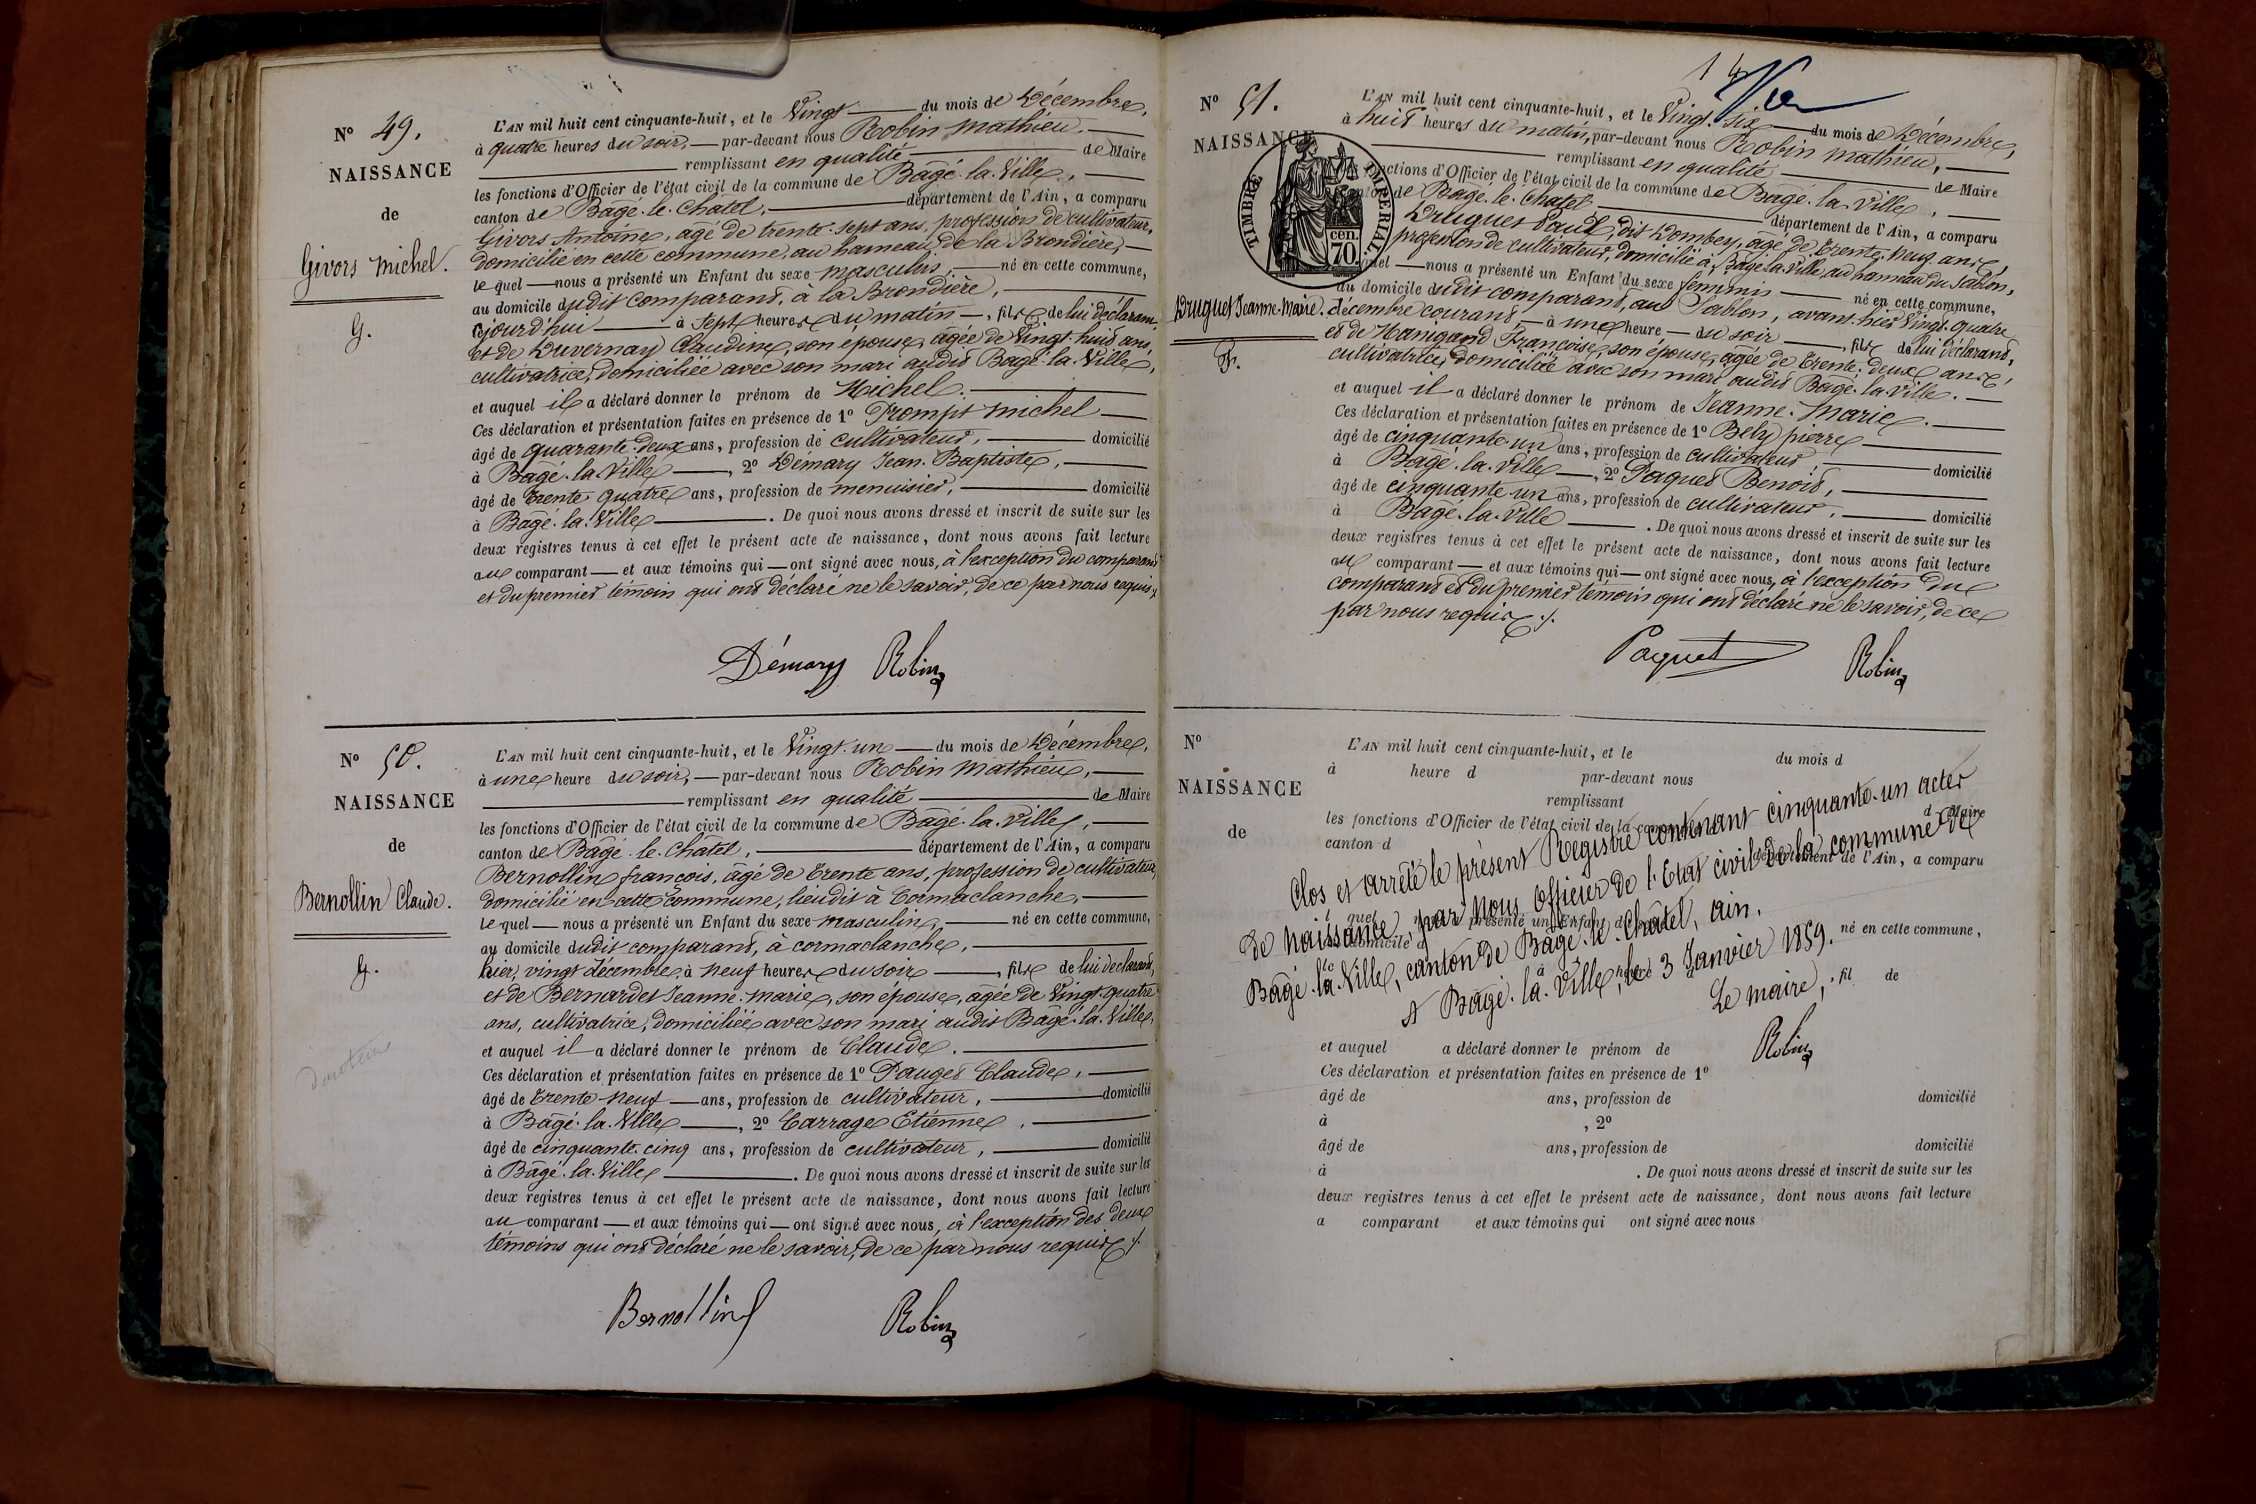 N° 49.
NAISSANCE
de
Givors Michel.
G.
L'AN mil huit cent cinquante-huit, et le Vingt du mois de Décembre,
à quatre heures du soir, par-devant nous Robin Mathieu.
remplissant en qualité de Maire
les fonctions d'Officier de l'état civil de la commune de Bagé-la-Ville,
canton de Bagé-le-Châtel, département de l'Ain, a comparu
Givors Antoine, âgé de trente-sept ans, profession de cultivateur,
domicilié en cette commune, au hameau de la Brondière,
le quel nous a présenté un Enfant du sexe masculin, né en cette commune,
au domicile dudit comparant, à la Brondière,
ajourd'hui à sept heures du matin, fils de lui déclarant,
et de Duvernay Claudine, son épouse, âgée de Vingt-huit ans,
cultivatrice, domiciliée avec son mari audit Bagé-la-Ville,
et auquel il a déclaré donner le prénom de Michel.
Ces déclaration et présentation faites en présence de 1° Prompt Michel
âgé de quarante-deux ans, profession de cultivateur, domicilié
à Bagé-la-Ville, 2° Démary Jean-Baptiste,
âgé de trente quatre ans, profession de menuisier, domicilié
à Bagé-la-Ville. De quoi nous avons dressé et inscrit de suite sur les
deux registres tenus à cet effet le présent acte de naissance, dont nous avons fait lecture
au comparant et aux témoins qui ont signé avec nous, à l'exception du comparant
et du premier témoin qui ont déclaré ne le savoir, de ce par nous requis./.
Démary Robin
N° 50.
NAISSANCE
de
Bernollin Claude.
G.
L'AN mil huit cent cinquante-huit, et le Vingt-un du mois de Décembre,
à une heure du soir, par-devant nous Robin Mathieu,
remplissant en qualité de Maire
les fonctions d'Officier de l'état civil de la commune de Bagé-la-Ville,
canton de Bagé-le-Châtel, département de l'Ain, a comparu
Bernollin françois, âgé de trente ans, profession de cultivateur,
domicilié en cette commune, lieudit à Cormaclanche,
le quel nous a présenté un Enfant du sexe masculin, né en cette commune,
au domicile dudit comparant, à cormaclanche,
hier, vingt décembre à neuf heures du soir, fils de lui déclarant,
et de Bernardet Jeanne-Marie, son épouse, âgée de Vingt-quatre
ans, cultivatrice, domiciliée avec son mari audit Bagé-la-Ville,
et auquel il a déclaré donner le prénom de Claude.
Ces déclaration et présentation faites en présence de 1° Pauget Claude,
âgé de trente-neuf ans, profession de cultivateur, domicilié
à Bagé-la-Ville, 2° Carrage Etienne,
âgé de cinquante-cinq ans, profession de cultivateur, domicilié
à Bagé-la-Ville. De quoi nous avons dressé et inscrit de suite sur les
deux registres tenus à cet effet le présent acte de naissance, dont nous avons fait lecture
au comparant et aux témoins qui ont signé avec nous, à l'exception des deux
témoins qui ont déclaré ne le savoir, de ce par nous requis./.
Bernollin Robin
N° 51.
NAISSANCE
TIMBRE IMPERIAL
cen.
70
Druguet Jeanne-Marie.
F.
L'AN mil huit cent cinquante-huit, et le Vingt-six du mois de Décembre,
à huit heures du matin, par-devant nous Robin Mathieu,
remplissant en qualité de Maire
fonctions d'Officier de l'état civil de la commune de Bagé-la-Ville,
de Bagé-le-Châtel département de l'Ain, a comparu
Druguet Paul, dit Dombey, âgé de trente-neuf ans,
profession de cultivateur, domicilié à Bagé-la-Ville au hameau du Sablon,
quel nous a présenté un Enfant du sexe féminin né en cette commune,
au domicile dudit comparant, au Sablon, avant-hier Vingt-quatre
décembre courant, à une heure du soir, fille de lui déclarant,
et de Manigand Françoise, son épouse, âgée de trente-deux ans,
cultivatrice, domiciliée avec son mari audit Bagé-la-Ville.
et auquel il a déclaré donner le prénom de Jeanne-Marie.
Ces déclaration et présentation faites en présence de 1° Bely pierre
âgé de cinquante-un ans, profession de cultivateur, domicilié
à Bagé-la-Ville, 2° Paquet Benoit,
âgé de cinquante-un ans, profession de cultivateur, domicilié
à Bagé-la-Ville. De quoi nous avons dressé et inscrit de suite sur les
deux registres tenus à cet effet le présent acte de naissance, dont nous avons fait lecture
au comparant et aux témoins qui ont signé avec nous, à l'exception du
comparant et du premier témoin qui ont déclaré ne le savoir, de ce
par nous requis./.
Paquet Robin
N°
NAISSANCE
de
L'AN mil huit cent cinquante-huit, et le du mois d
à heure d par-devant nous
remplissant d Maire
les fonctions d'Officier de l'état civil de la commune
canton d département de l'Ain, a comparu
quel présenté un Enfant d né en cette commune,
domicile
fil de
Clos et arrêté le présent Registre contenant cinquante-un actes
de naissance, par nous Officier de l'Etat civil de la commune de
Bagé-la-Ville, canton de Bagé-le-Châtel, ain.
A Bagé-la-Ville, le 3 Janvier 1859.
Le maire,
Robin
et auquel a déclaré donner le prénom de
Ces déclaration et présentation faites en présence de 1°
âgé de ans, profession de domicilié
à , 2°
âgé de ans, profession de domicilié
à . De quoi nous avons dressé et inscrit de suite sur les
deux registres tenus à cet effet le présent acte de naissance, dont nous avons fait lecture
a comparant et aux témoins qui ont signé avec nous